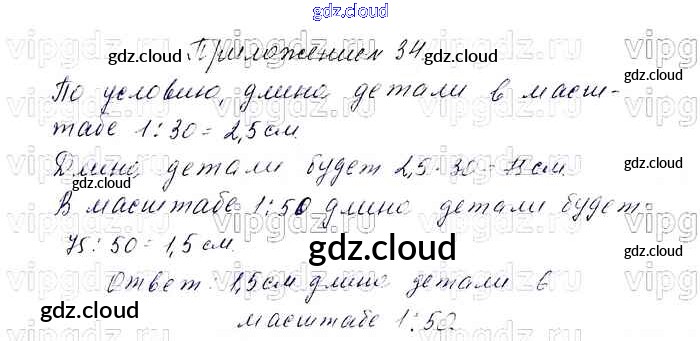 gdz.cloud
Приложением 34
gdz.cloud gdz.cloud
По условию, длина детали в масш-
gdz.cloud
табе 1:30 = 2,5 см.
Длина детали будет 2,5 · 30 = 75 см
gdz.cloud
В масштабе 1:50 длина детали будет:
75 : 50 = 1,5 см.
gdz.cloud gdz.cloud gdz.cloud
Ответ: 1,5 см длина детали в
gdz.cloud gdz.cloud
масштабе 1:50.